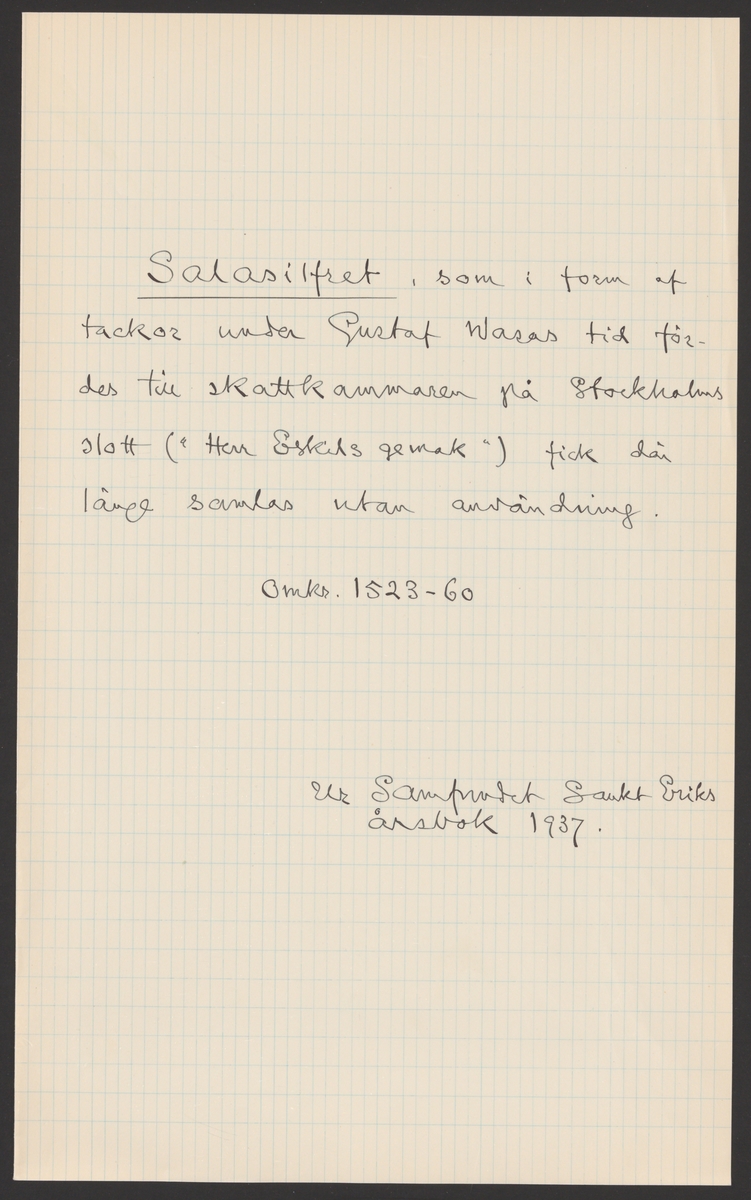 Salasilfret, som i form af
tackor under Gustaf Wasas tid för-
des till skattkammaren på Stockholms
slott ("Herr Eskils gemak") fick där
länge samlas utan användning.
Omkr. 1523-60
Ur Samfundet Sankt Eriks
årsbok 1937.